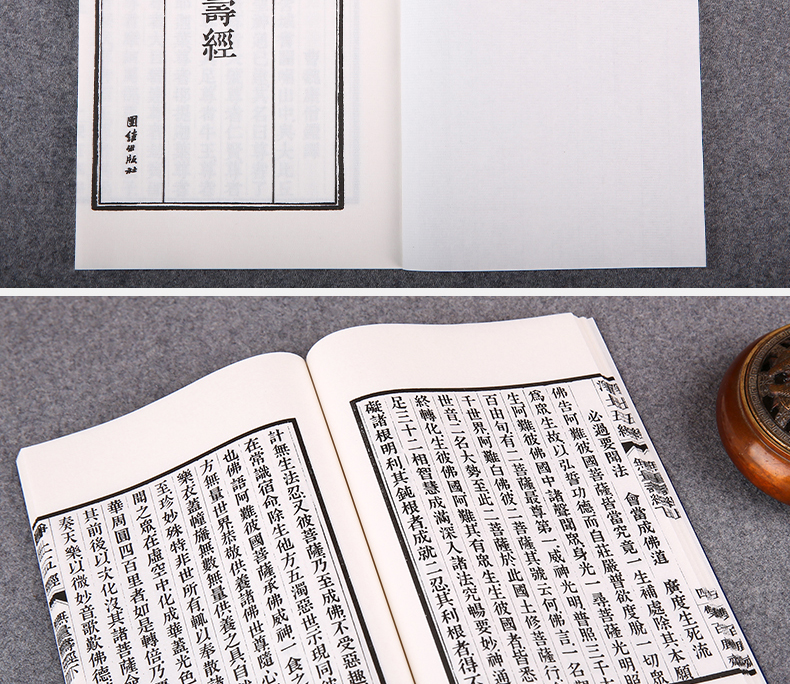 壽經
團結出版社
必過要聞法　會當成佛道　廣度生死流
佛告阿難彼國菩薩皆當究竟一生補處除其本願
爲眾生故以弘誓功德而自莊嚴普欲度脫一切眾
生阿難彼佛國中諸聲聞眾身光一尋菩薩光明照
百由旬有二菩薩最尊第一威神光明普照三千大
千世界阿難白佛彼二菩薩其號云何佛言一名
世音二名大勢至此二菩薩於此國土修菩薩行
終轉化生彼佛國阿難其有眾生生彼國者皆悉
足三十二相智慧成滿深入諸法究暢要妙神通
礙諸根明利其鈍根者成就二忍其利根者得不
計無生法忍又彼菩薩乃至成佛不受惡趣
在常識宿命除生他方五濁惡世示現同
也佛語阿難彼國菩薩承佛威神一食之
方無量世界恭敬供養諸佛世尊隨心
樂衣蓋幢旛無數無量供養之具自
至珍妙殊特非世所有輒以奉散
間之眾在虛空中化成華蓋光色
華周圓四百里者如是轉倍乃
其前後以次化沒其諸菩薩
奏天樂以微妙音歌歎佛德